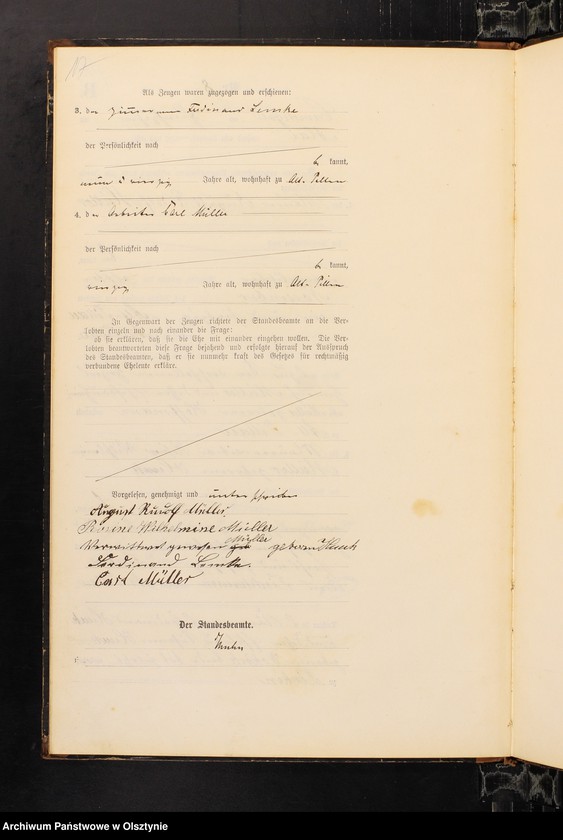 17
Als Zeugen waren zugezogen und erschienen:
3. der Zimmermann Ferdinand Lemke
der Persönlichkeit nach
be kannt,
neun u vierzig Jahre alt, wohnhaft zu Alt-Pillau
4. der Arbeiter Carl Müller
der Persönlichkeit nach
be kannt,
vierzig Jahre alt, wohnhaft zu Alt-Pillau
In Gegenwart der Zeugen richtete der Standesbeamte an die Ver-
lobten einzeln und nach einander die Frage:
ob sie erklären, daß sie die Ehe mit einander eingehen wollen. Die Ver-
lobten beantworteten diese Frage bejahend und erfolgte hierauf der Ausspruch
des Standesbeamten, daß er sie nunmehr kraft des Gesetzes für rechtmäßig
verbundene Eheleute erkläre.
Vorgelesen, genehmigt und unterschrieben
August Rudolf Müller
Rosine Wilhelmine Müller
Müller
verwittwet gewesene geboren
Ferdinand Lemke.
Carl Müller
Der Standesbeamte.
Archiwum Państwowe w Olsztynie